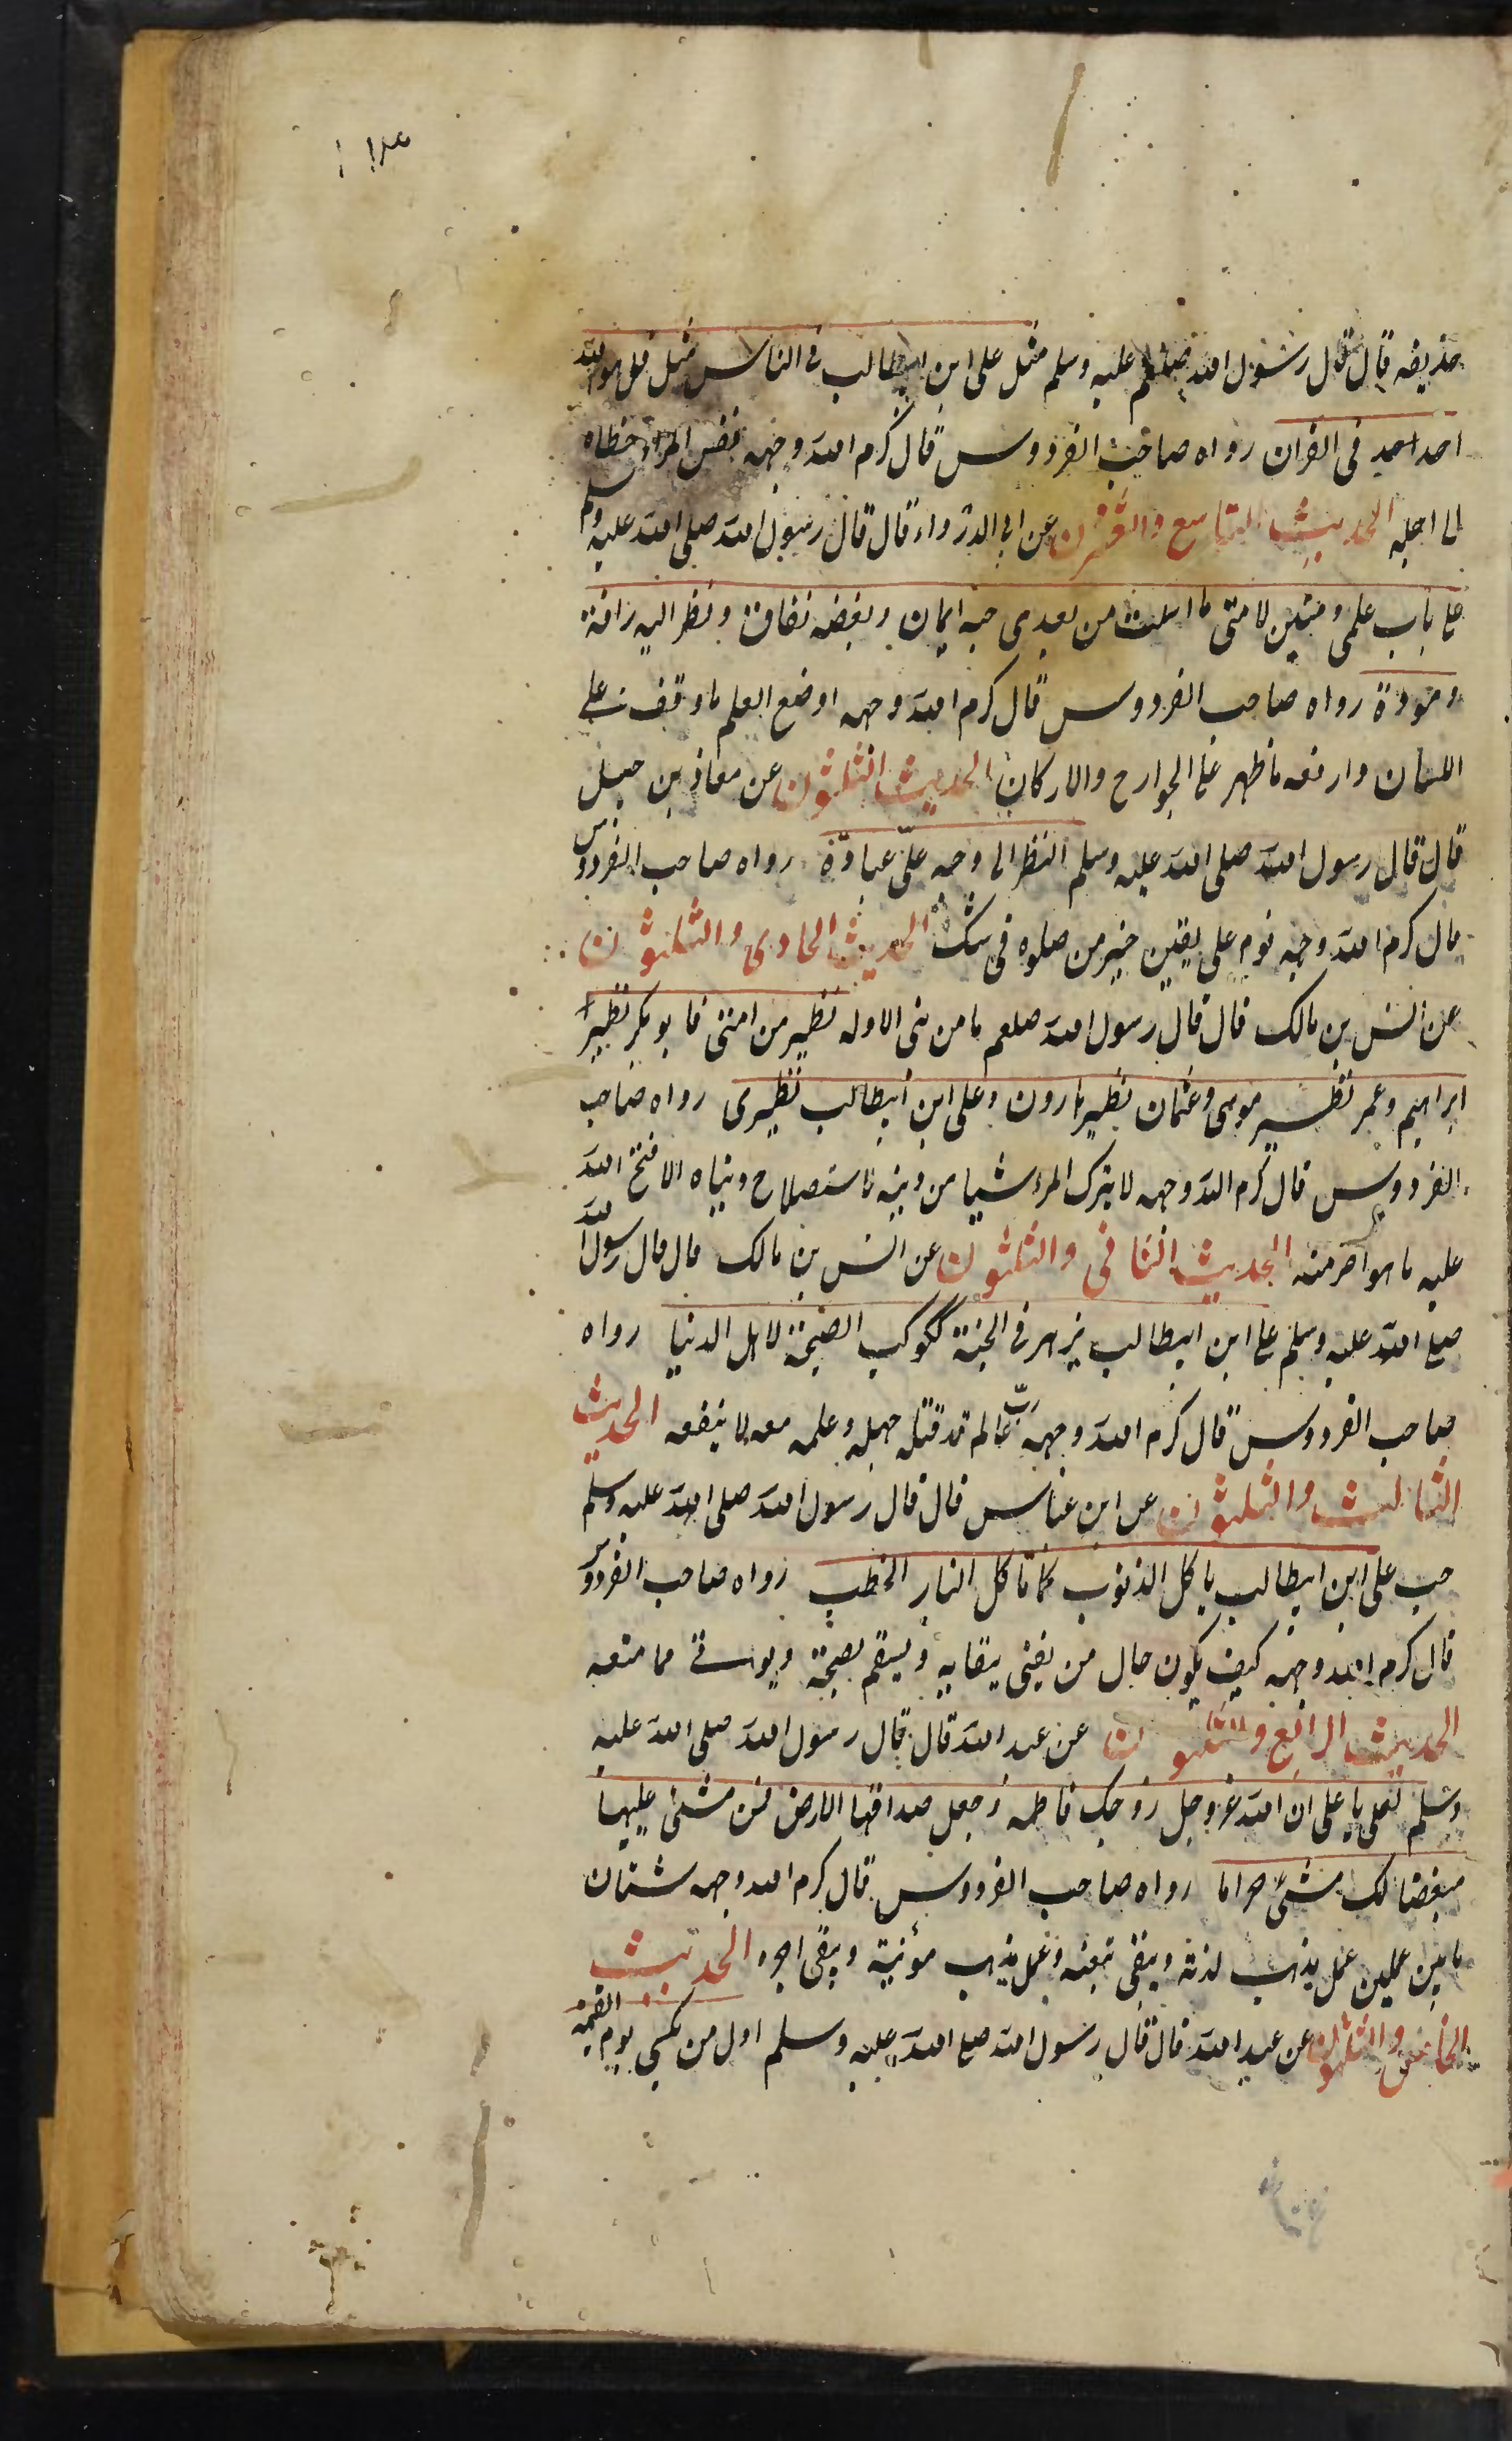 حذیفه قال قال رسول الله صلعم علیه وسلم مثل علی ابن ابیطالب فی الناس مثل قل هو الله
احد احد فی القران رواه صاحب الفردوس قال کرم الله وجهه نفس المرء خطاه
الی اجله الحدیث التاسع والعشرن عن ابی الدرداء قال قال رسول الله صلی الله علیه وسلم
علی باب علمی ومبین لامتی ما ارسلت من بعدی حبه ایمان وبغضه نفاق ونظر الیه رافة
ومودة رواه صاحب الفردوس قال کرم الله وجهه اوضع العلم ما وقف علی
اللسان وارفعه ما ظهر علی الجوارح والارکان الحدیث الثلثون عن معاذ بن جبل
قال قال رسول الله صلی الله علیه وسلم النظر الی وجه علی عبادة رواه صاحب الفردوس
قال کرم الله وجهه نوم علی یقین خیر من صلوه فی شک الحدیث الحادی والثلثون
عن انس بن مالک قال قال رسول الله صلعم ما من نبی الا وله نظیر من امتی فابوبکر نظیر
ابراهیم وعمر نظیر موسی وعثمان نظیر هارون وعلی ابن ابیطالب نظیری رواه صاحب
الفردوس قال کرم الله وجهه لا یترک المرء شیا من دینه لاستصلاح دنیاه الا فتح الله
علیه ما هو اضر منه الحدیث الثانی والثلثون عن انس بن مالک قال قال رسول الله
صلی الله علیه وسلم علی ابن ابیطالب یزهر فی الجنة ککوکب الصبح لاهل الدنیا رواه
صاحب الفردوس قال کرم الله وجهه ربّ عالم قد قتله جهله وعلمه معه لا ینفعه الحدیث
الثالث والثلثون عن ابن عباس قال قال رسول الله صلی الله علیه وسلم
حب علی ابن ابیطالب یاکل الذنوب کما تاکل النار الحطب رواه صاحب الفردوس
قال کرم الله وجهه کیف یکون حال من یفنی ببقایه ویسقم بصحته ویوتی مما منعه
الحدیث الرابع والثلثون عن عبد الله قال قال رسول الله صلی الله علیه
وسلم لعلی یا علی ان الله عزوجل زوجک فاطمه وجعل صداقها الارض فمن مشی علیها
مبغضا لک مشی حراما رواه صاحب الفردوس قال کرم الله وجهه شتان
ما بین عملین عمل یذهب لذته ویبقی تبعته وعمل یذهب مؤنته ویبقی اجره الحدیث
الخامس والثلثون عن عبد الله قال قال رسول الله صلی الله علیه وسلم اول من یکسی یوم القیمة